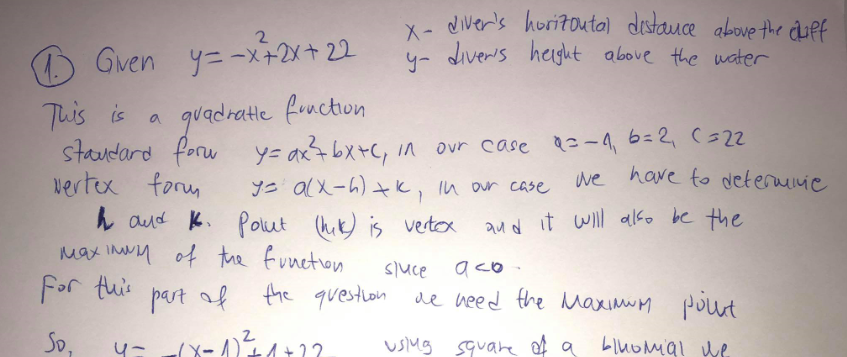 x- diver's horizontal distance above the cliff
① Given y = -x²+2x+22 y- diver's height above the water
This is a quadratic function
standard form y= ax²+bx+c, in our case a=-1, b=2, c=22
Vertex form y= a(x-h)+k, in our case we have to determine
h and k. Point (h,k) is vertex and it will also be the
maximum of the function since a<0.
For this part of the question we need the maximum point
So, y= -(x-1)²+1+22 using square of a binomial we